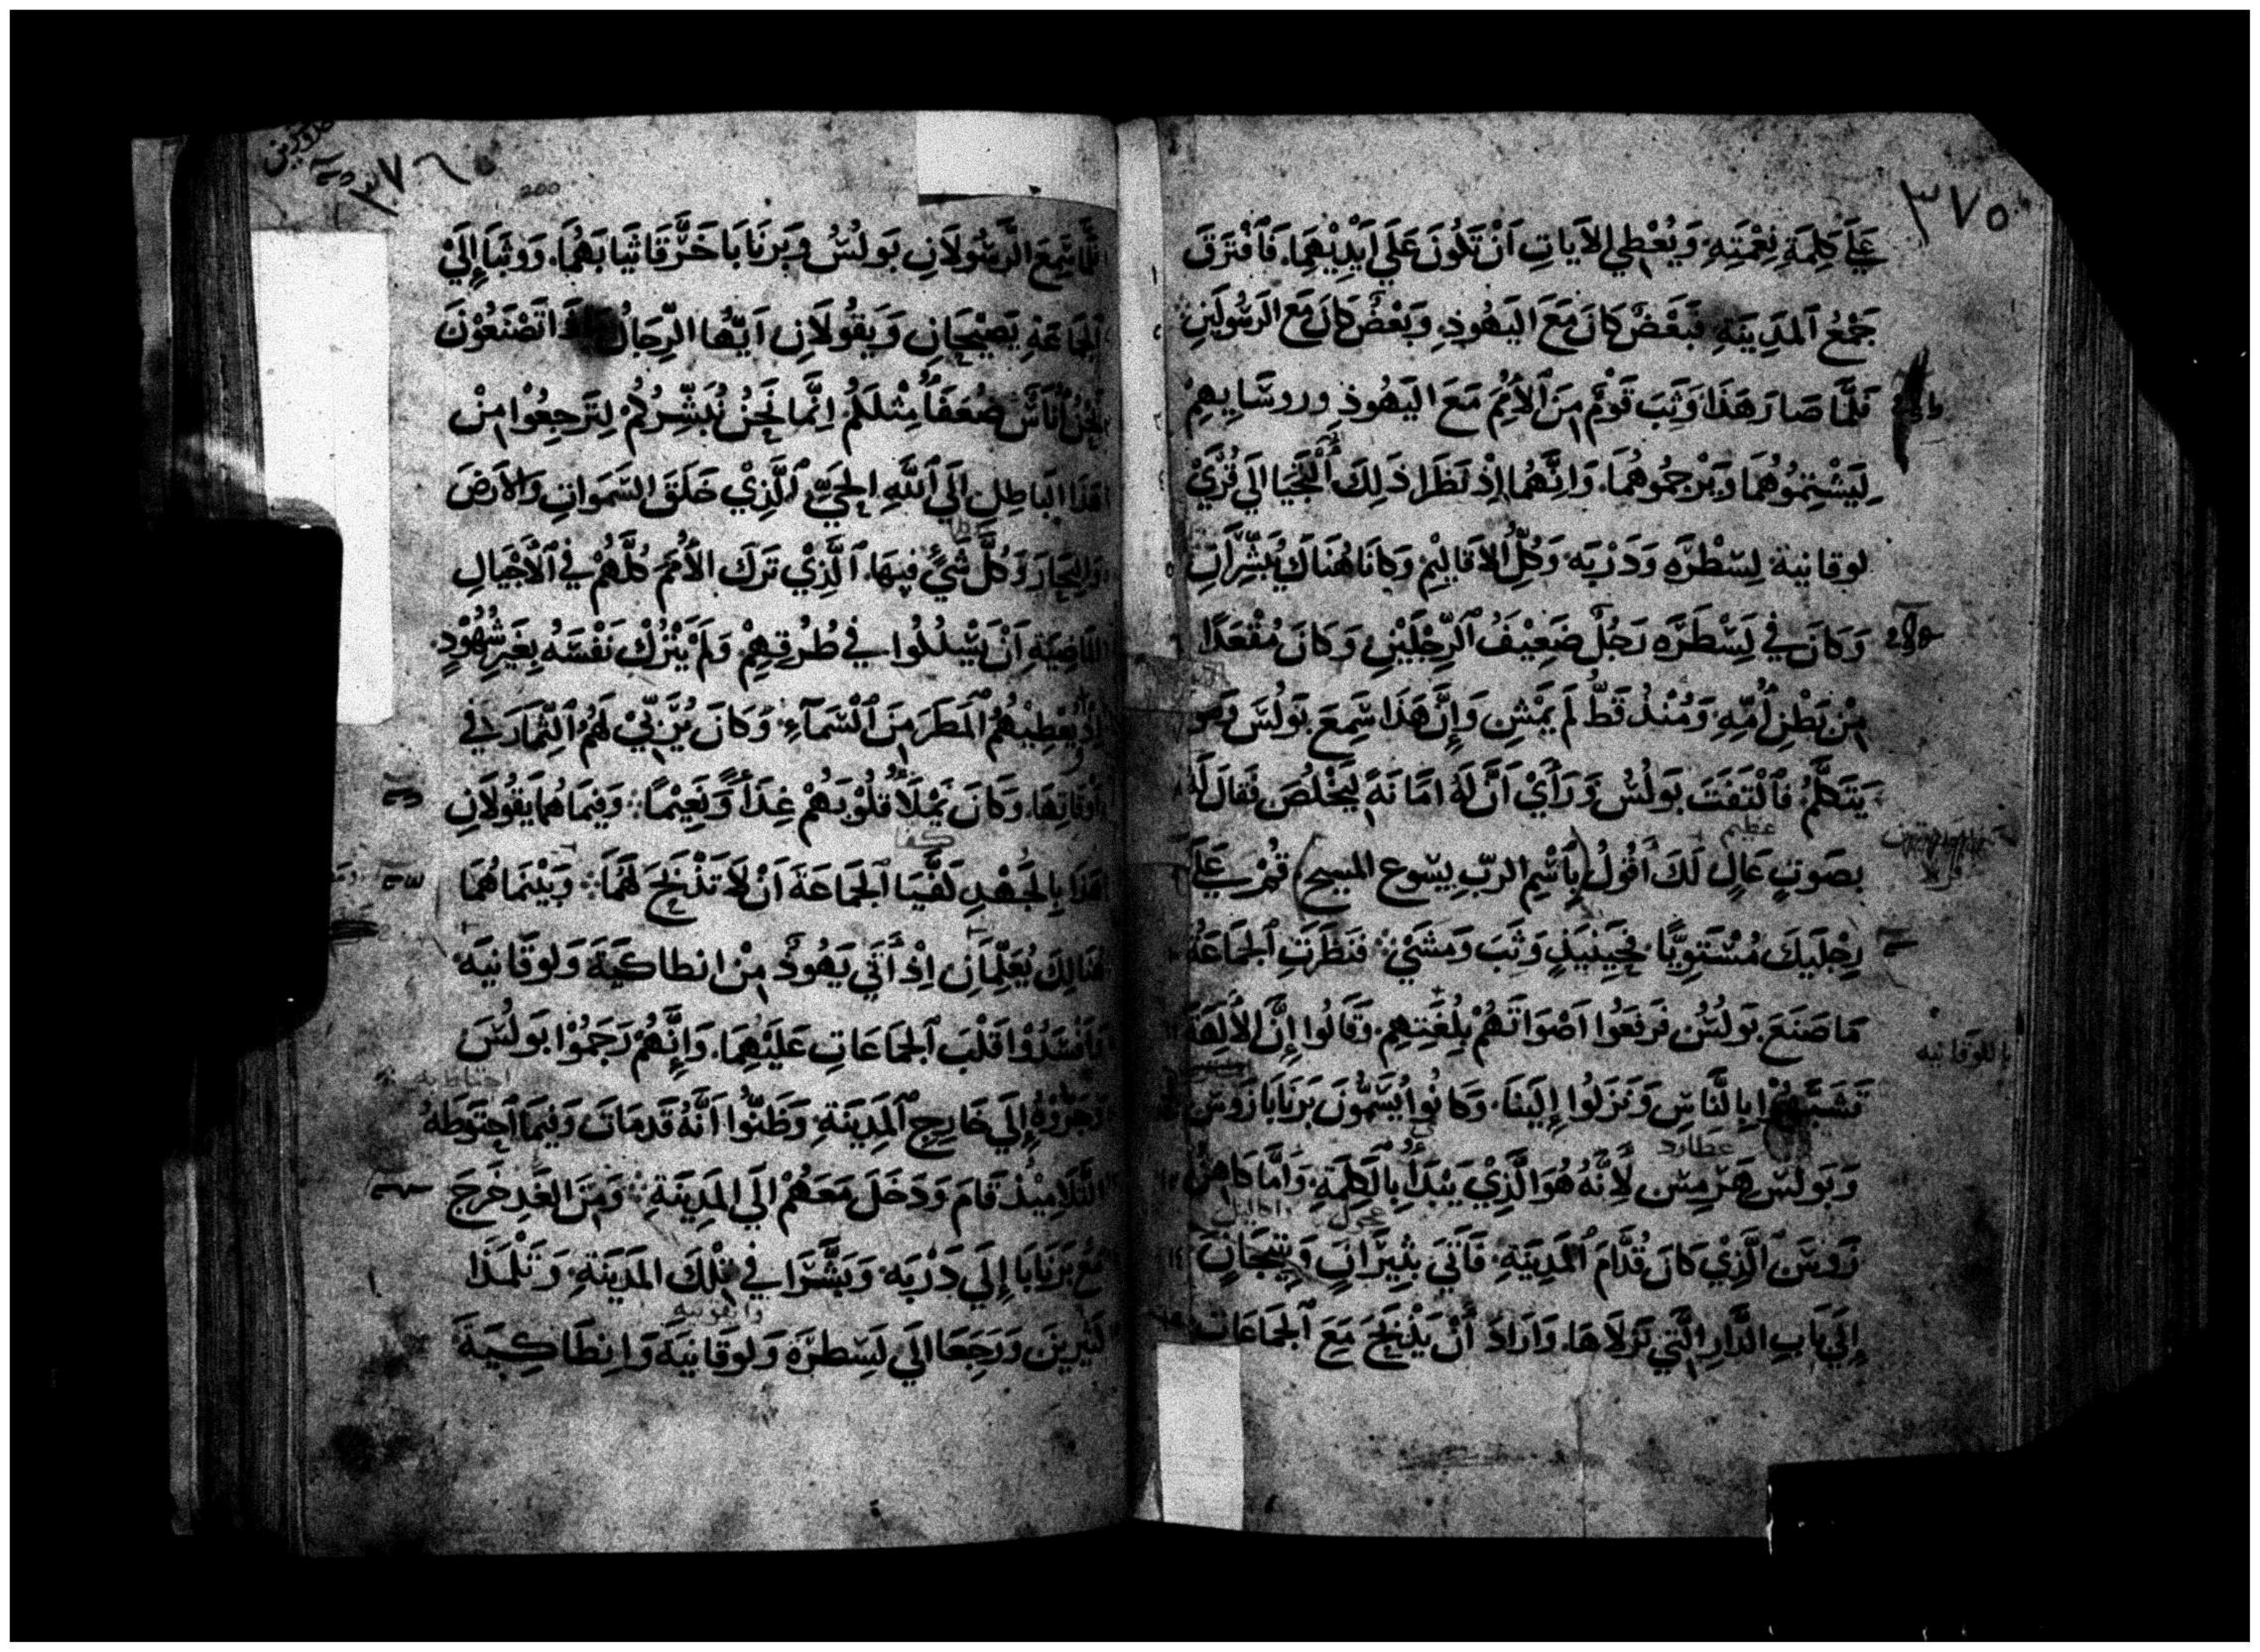 ٣٧٥
عَلَي كَلِمَةِ نِعْمَتِهِ وَيُعْطِي الآيَاتِ اَنْ تَكُونَ عَلَي اَيْدِيْهِمَا، فَٱفْتَرَقَ
جَمْعُ ٱلمَدِيَنةِ فَبَعْضٌ كَانَ مَعَ اليَهُوذِ، وَبَعْضٌ كَانَ مَعَ الرَسُولَينِ
فَلَمَّا صَارَ هَذَا وَثَبَ قَوْمٌ مِنَ ٱلأُمَمِ مَعَ اليَهُوذِ وروسَايِهِمْ
لِيَشْتِمُوْهُمَا وَيَرْجمُوهُمَا، وَاِنَّهُمَا اِذْ نَظَرَا ذَلِكَ أَلْتَجَيَا اِلَي قُرَيْ
لوقانية لِسْطرَه وَدَرْبَه وَكُلِّ الاَقَالِيْمِ وَكَانَا هُنَاكَ يُبَشِّرَانِ
وَكَانَ فِي لَسْطَرَه رَجُلٌ ضَعِيْفُ ٱلرِّجْلَيْنِ وَكَانَ مُقْعَدًا
مِنْ بَطْنِ اُمِّهِ وَمُنْذُ قَطُّ لَم يَمْشِ وَاِنَّ هَذَا سَمِعَ بَولُسَ وَهو
يَتَكَلَّمُ، فَٱلْتَفَتَ بَولُسُ وَرَأَيْ اَنَّ لَهُ امَانَةً لِيَخْلُصَ فَقَالَ لَهُ
عظيم
بصَوتٍ عَالٍ لَكَ اَقُولُ (بِاَسْمِ الربّ يسوع المسيح) قُمْ عَلَي
رِجْلَيكَ مُسْتَوِيًّا، فَحِينَيذٍ وَثَبَ وَمَشَيْ: فَنَظَرَتِ ٱلجَمَاعَةُ
مَا صَنَعَ بَولُسُ فَرفَعُوا اَصْوَاتَهُمْ بِلُغَتِهِم، وَقَالُوا اِنَّ الاَلِهَةَ
باللوقانيه
تَشَبَّهُوْا بِالنَّاسِ وَنَزَلُوا اِلَينَا، وَكَانُوا يُسَمُّونَ بَرنَابَا زَوسَ
عطارد
وَبَولُسَ هَرْمِسَ لاَنَّهُ هُوَ الَّذِيْ يَبْدَأُ بِالَكَلِمَةِ، وَاَمَّا كَاهِنُ
عجول
زَوسَ ٱلَّذِيْ كَانَ قُدَّامَ ٱلمَدِيَنةِ، فَاَتَي بِثِيْرَانٍ وَتِيْجَانٍ
اِلَي بَابِ الدَّارِ الَّتِي نَزلاَهَا، وَاَرَادَ اَنْ يَذْبَحَ مَعَ ٱلجَمَاعَاتِ
٣٧٦
200
فلَمَّا سَمِعَ الرَّسُولاَنِ بَولُسُ وَبَرنَابَا خَرَّقَا ثيَابَهُمَا، وَوثَبَا اِلَيْ
ٱلجَمَاعَةِ يَصِيْحَانِ وَيَقُولاَنِ اَيُّها الرِّجَالُ مَاذَا تَصْنَعُوْنَ
نَحْنُ اُنَاسٌ ضُعَفَاُ مِثْلَكُم اِنَّمَا نَحْنُ نُبَشِّرُكُمْ لِتَرجِعُوْا مِنْ
هَذَا البَاطِلِ اِلَي ٱللَّهِ الحَيِّ ٱلَّذِيْ خَلَقَ السَّمَواتِ وَالاَرضَ
وَالبِحَارَ وَكُلَّ شَيْءٍ فِيهَا، ٱلَّذِيْ تَرَكَ الاُمَمَ كُلَّهُمْ فِي ٱلاَجْيَالِ
المَاضِيَةِ اَنْ يَسْلُكُوا فِي طُرُقِهِمْ وَلَمْ يَتْرُكْ نَفْسَهُ بِغَيرِ شُهُوْدٍ،
اِذْ يُعْطِيْهُمُ ٱلمَطَرَ مِنَ ٱلسَّمَآءِ، وَكَانَ يُرَبِّيْ لَهُمُ ٱلثِّمَارَ فِي
اَوقَاتِهَا، وَكَانَ يَمْلَأُ قلُوْبَهُمْ غِذَاً وَنَعِيْمًا: وَفِيمَا هُمَا يَقُولاَنِ
كفّا
هَذَا بِالجَهْدِ لَفَّيَا ٱلجَمَاعَةَ اَنْ لاَ تَذْبَحَ لَهُمَا: وَبَيْنَمَا هُمَا
هُنَالِكَ يُعَلِّمَانِ اِذْ أَتَي يَهُوذٌ مِنْ انطاكيَةَ وَلوقَانيَه،
فَاَفْسَدُوْا قَلْبَ ٱلجَمَاعَاتِ عَلَيْهِمَا، وَاِنَّهُمْ رَجَمُوْا بَولُسَ
وَجَرُّوْهُ اِلَي خَارِجِ ٱلمَدِيَنةِ، وَظَنُّوا اَنَّهُ قَدمَاتَ وَفِيمَا ٱحتَوَطَهُ
التَّلاَمِيْذُ قَامَ وَدَخَلَ مَعَهُمْ اِلَي المَدِيَنَةِ: وَمِنَ الغَدِ خَرَجَ
مَعَ بَرنَابَا اِلَي دَرْبَه، وَبَشَّرَا فِي تِلْكَ المَدِيَنَةِ، وَتَلْمَذَا
كَثيرِينَ وَرَجَعَا اِلَي لَسْطرَةَ وَلوقَانيَةَ وَانطَاكِيَةَ